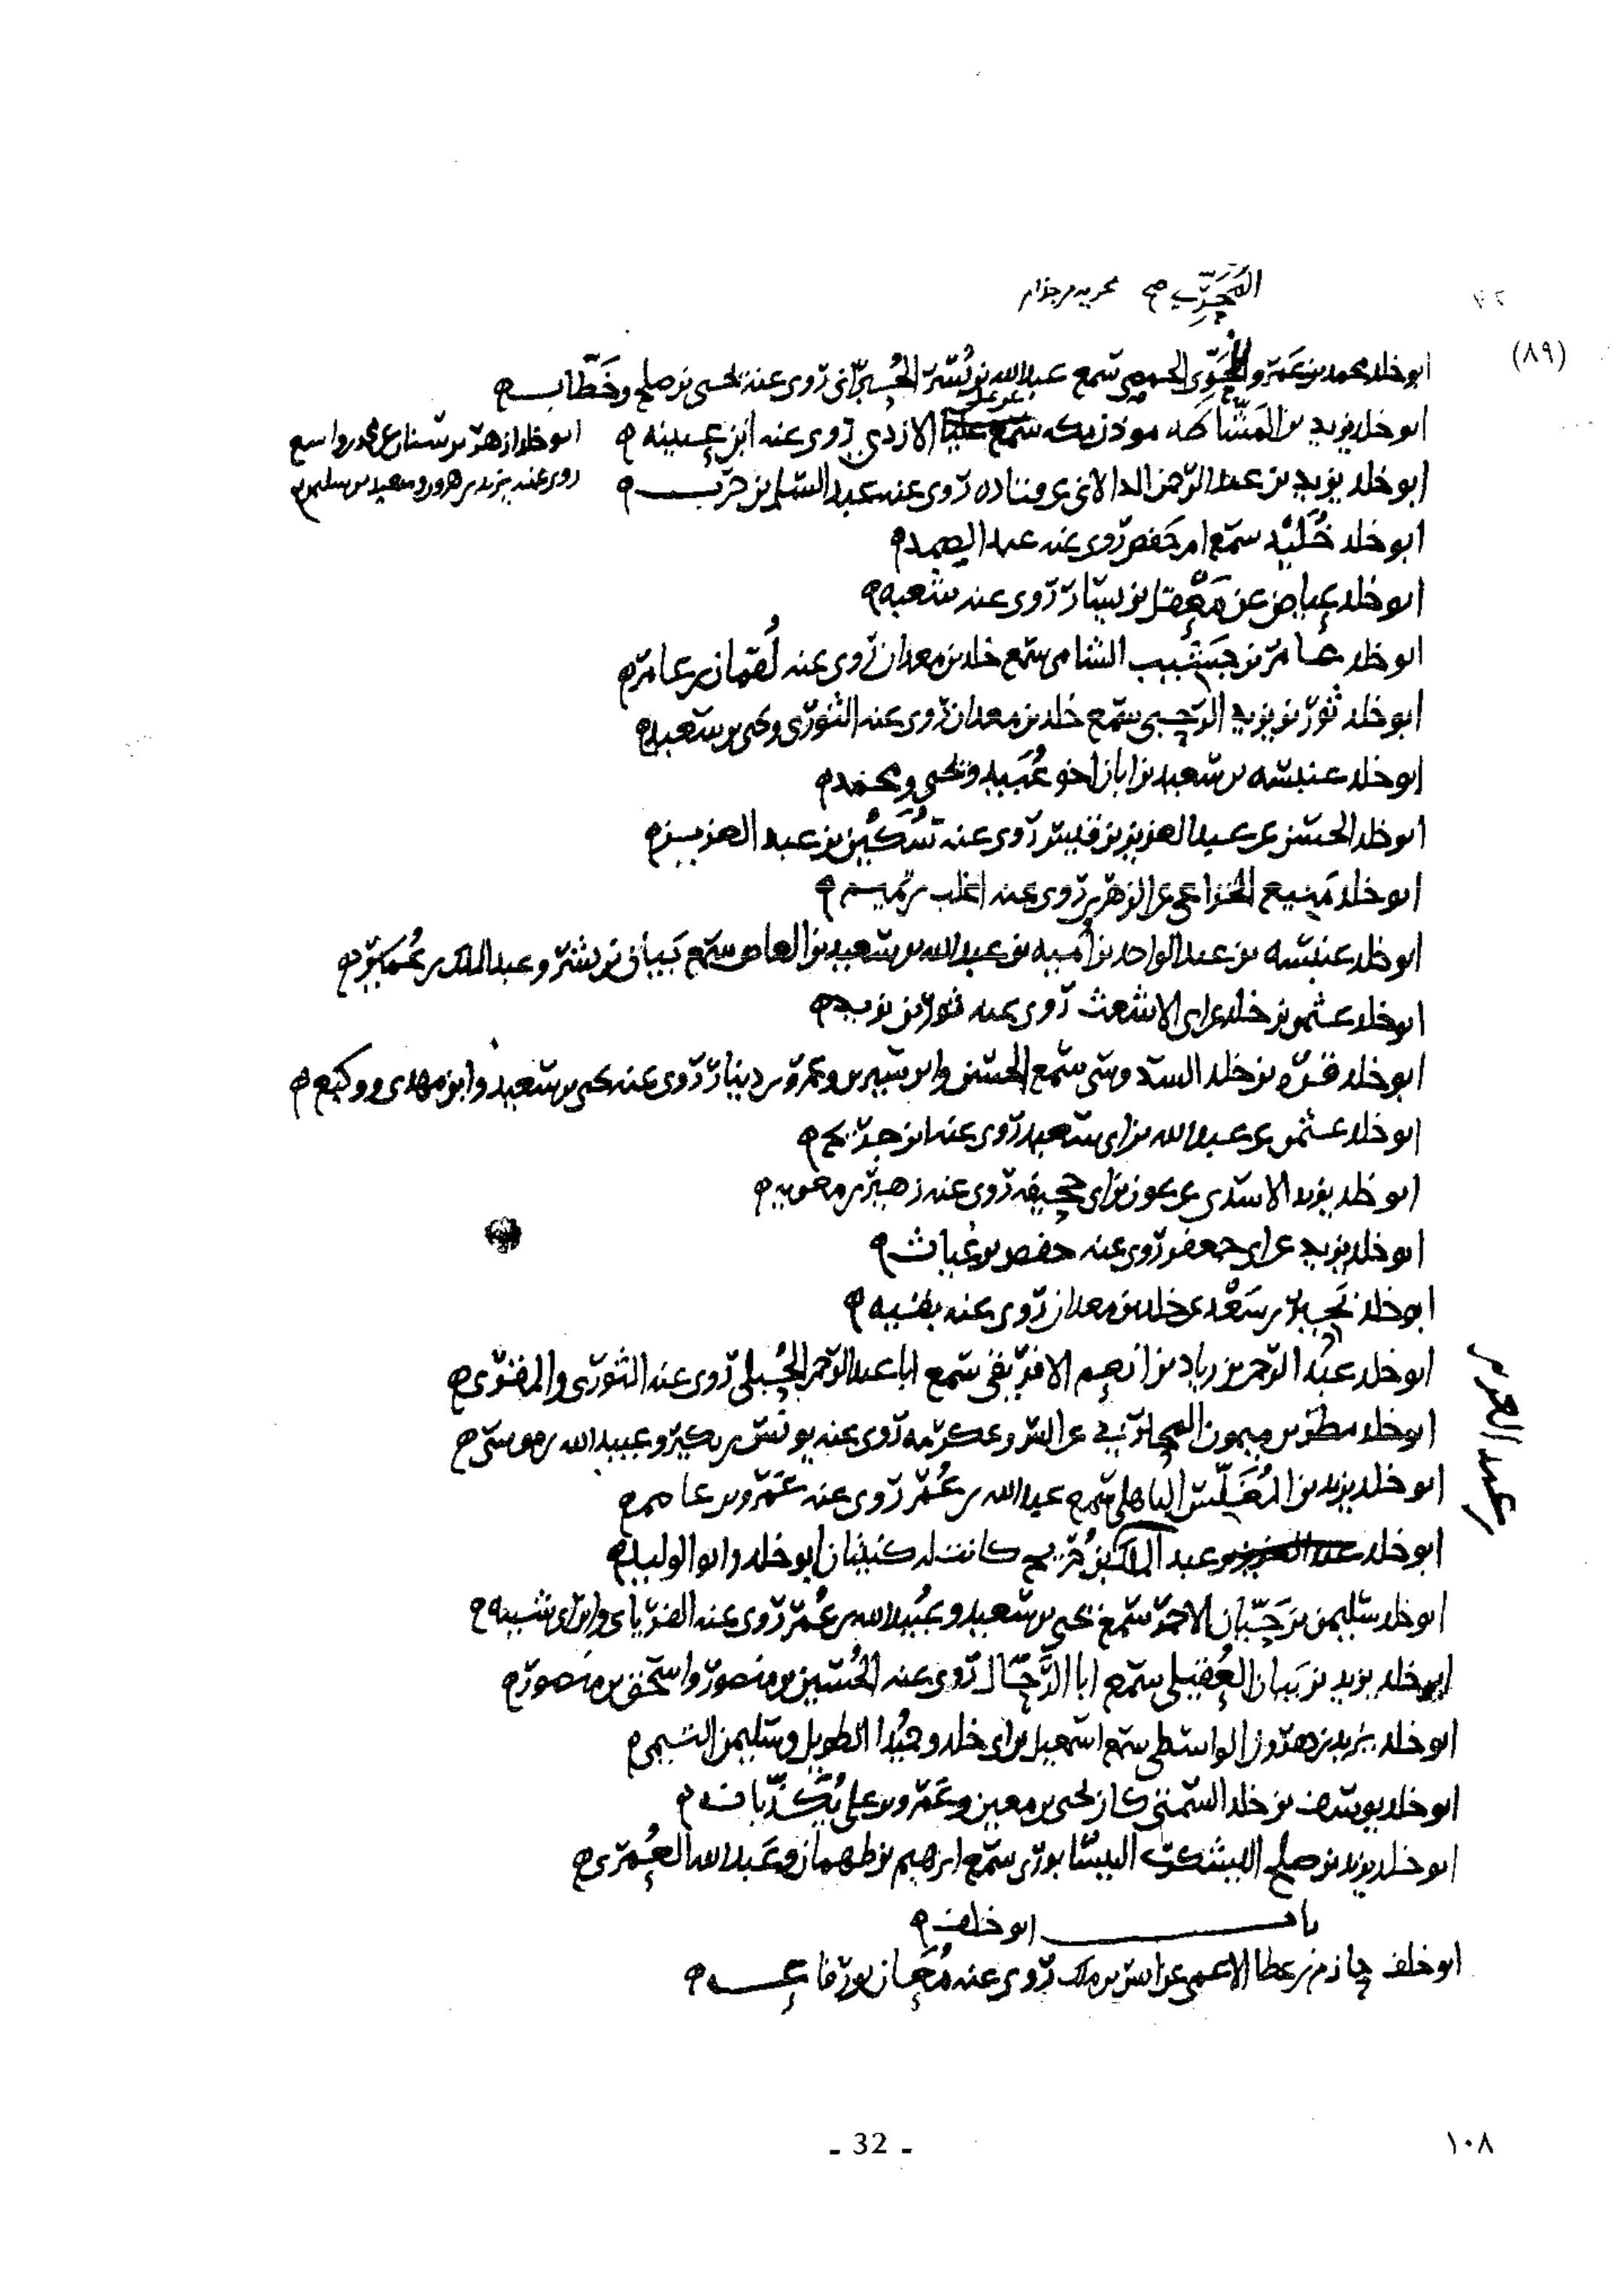 المحري صح محريه من جذام
٣٢
(٨٩)
ابو خلد محمد بن عمرو المحري الحمصي سمع عبدالله بن بسر الحبراني روى عنه يحيى بن صلح وخطاب
ابو خلد يزيد بن المشاطه موذن مكه سمع عليا الازدي روى عنه ابن عيينه
عن علي
ابو خلد ازهر بن سنان عن محمد بن واسع
روى عنه يزيد بن هرون وسعيد بن سليمن
ابو خلد يزيد بن عبد الرحمن الدالاني عن قتاده روى عنه عبد السلم بن حرب
ابو خلد خليد سمع ام حفص روى عنه عبد الصمد
ابو خلد عياض عن معقل بن يسار روى عنه شعبه
ابو خلد عامر بن جشيب الشامي سمع خلد بن معدان روى عنه لقمان بن عامر
ابو خلد ثور بن يزيد الرحبي سمع خلد بن معدان روى عنه الثوري ويحيى بن سعيد
ابو خلد عنبسه بن سعيد بن ابان اخو عبيد ويحيى ومحمد
ابو خلد الحسن عن عبد العزيز بن قيس روى عنه سكين بن عبد العزيز
ابو خلد منيع الخزاعي عن الزهري روى عنه اغلب بن تميم
ابو خلد عنبسه بن عبد الواحد بن اميه بن عبدالله بن سعيد بن العاص سمع بيان بن بشر وعبد الملك بن عمير
ابو خلد عثمن بن خلد عن ابي الاشعث روى عنه ثور بن يزيد
ابو خلد قره بن خلد السدوسي سمع الحسن وابن سيرين وعمرو بن دينار روى عنه يحيى بن سعيد وابن مهدي ووكيع
ابو خلد عثمن عن عبدالله بن ابي سعيد روى عنه ابن جريج
ابو خلد يزيد الاسدي عن عون بن ابي جحيفه روى عنه زهير بن معويه
ابو خلد يزيد عن ابي جعفر روى عنه حفص بن غياث
ابو خلد بحير بن سعد عن خلد بن معدان روى عنه بقيه
ابو خلد عبد الرحمن بن زياد بن انعم الافريقي سمع ابا عبد الرحمن الحبلي روى عنه الثوري والمقري
ابو خلد مطر بن ميمون المحاربي عن انس وعكرمه روى عنه يونس بن بكير وعبيد الله بن موسى
ابو خلد يزيد بن المغلس الباهلي سمع عبدالله بن عمر روى عنه عمرو بن عاصم
ابو خلد عبد العزيز بن عبد الملك بن جريج كانت له كنيتان ابو خلد وابو الوليد
ابو خلد سليمن بن حيان الاحمر سمع يحيى بن سعيد وعبيدالله بن عمر روى عنه الفريابي وابن ابي شيبه
ابو خلد يزيد بن بيان العقيلي سمع ابا الرحال روى عنه الحسين بن منصور واسحق بن منصور
ابو خلد يزيد بن هرون الواسطي سمع اسمعيل بن ابي خلد وحميدا الطويل وسليمن التيمي
ابو خلد يوسف بن خلد السمتي كان يحيى بن معين وعمرو بن علي يكذبانه
ابو خلد يزيد بن صلح اليشكري النيسابوري سمع ابرهيم بن طهمان وعبدالله العمري
باب ابو خلف
ابو خلف حازم بن عطا الاعمى عن انس بن ملك روى عنه معان بن رفاعه
- 32 -
١٠٨